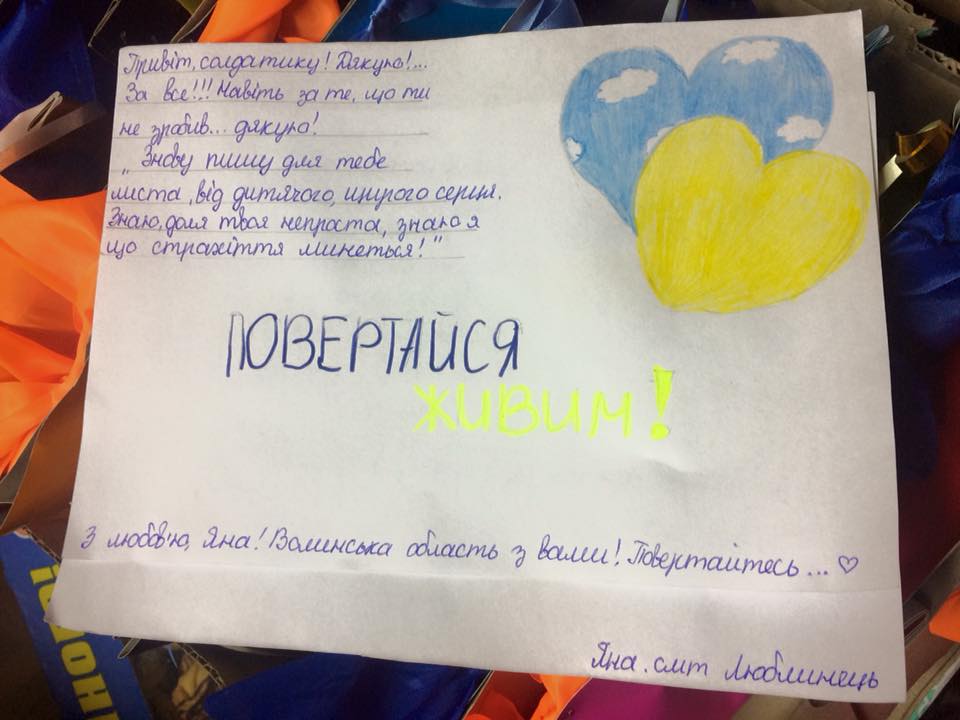 Привіт, солдатику! Дякую!...
За все!!! Навіть за те, що ти
не зробив... дякую!
„Знову пишу для тебе
листа, від дитячого, щирого серця.
Знаю, доля твоя непроста, знаю я
що страхіття минеться!"
ПОВЕРТАЙСЯ
ЖИВИМ!
З любов'ю, Яна! Волинська область з вами! Повертайтесь... ♡
Яна. смт Люблинець